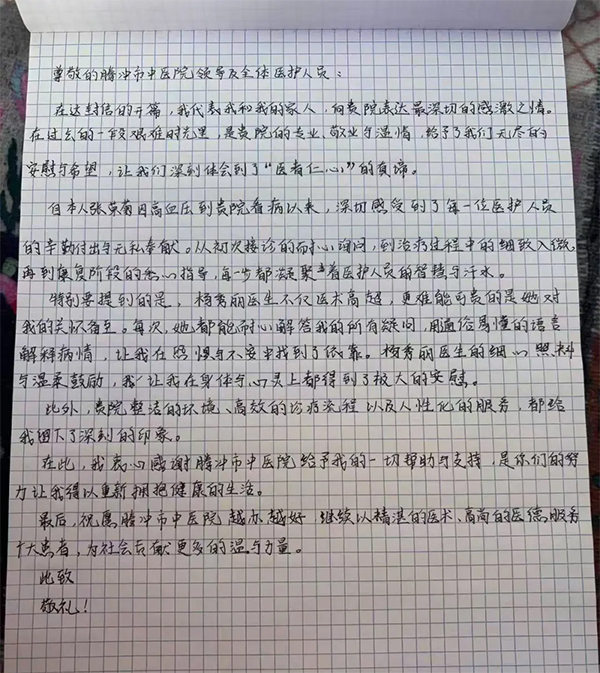 尊敬的腾冲市中医院领导及全体医护人员：
在这封信的开篇，我代表我和我的家人，向贵院表达最深切的感激之情。
在过去的一段艰难的光里，是贵院的专业、敬业与温情，给予了我们无尽的
安慰与希望，让我们深刻体会到了“医者仁心”的真谛。
自本人张荣菊因高血压到贵院看病以来，深切感受到了每一位医护人员
的辛勤付出与无私奉献。从初次接诊的耐心询问，到治疗过程中的细致入微，
再到康复阶段的悉心指导，每一步都凝聚着医护人员的智慧与汗水。
特别要提到的是，杨秀丽医生不仅医术高超，更难能可贵的是她对
我的关怀备至。每次，她都能耐心解答我的所有疑问，用通俗易懂的语言
解释病情，让我在恐惧与不安中找到了依靠。杨秀丽医生的细心照料
与温柔鼓励，让我在身体与心灵上都得到了极大的安慰。
此外，贵院整洁的环境、高效的诊疗流程以及人性化的服务，都给
我留下了深刻的印象。
在此，我衷心感谢腾冲市中医院给予我的一切帮助与支持，是你们的努
力让我得以重新拥抱健康的生活。
最后，祝愿腾冲市中医院越办越好，继续以精湛的医术、高尚的医德服务
广大患者，为社会贡献更多的温与力量。
此致
敬礼！